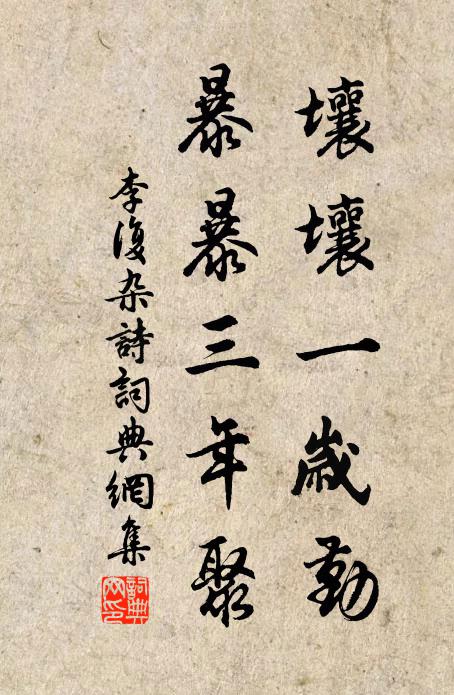 壤壤一歲勤
暴暴三年聚
李復杂詩詞典網集
詞典網印